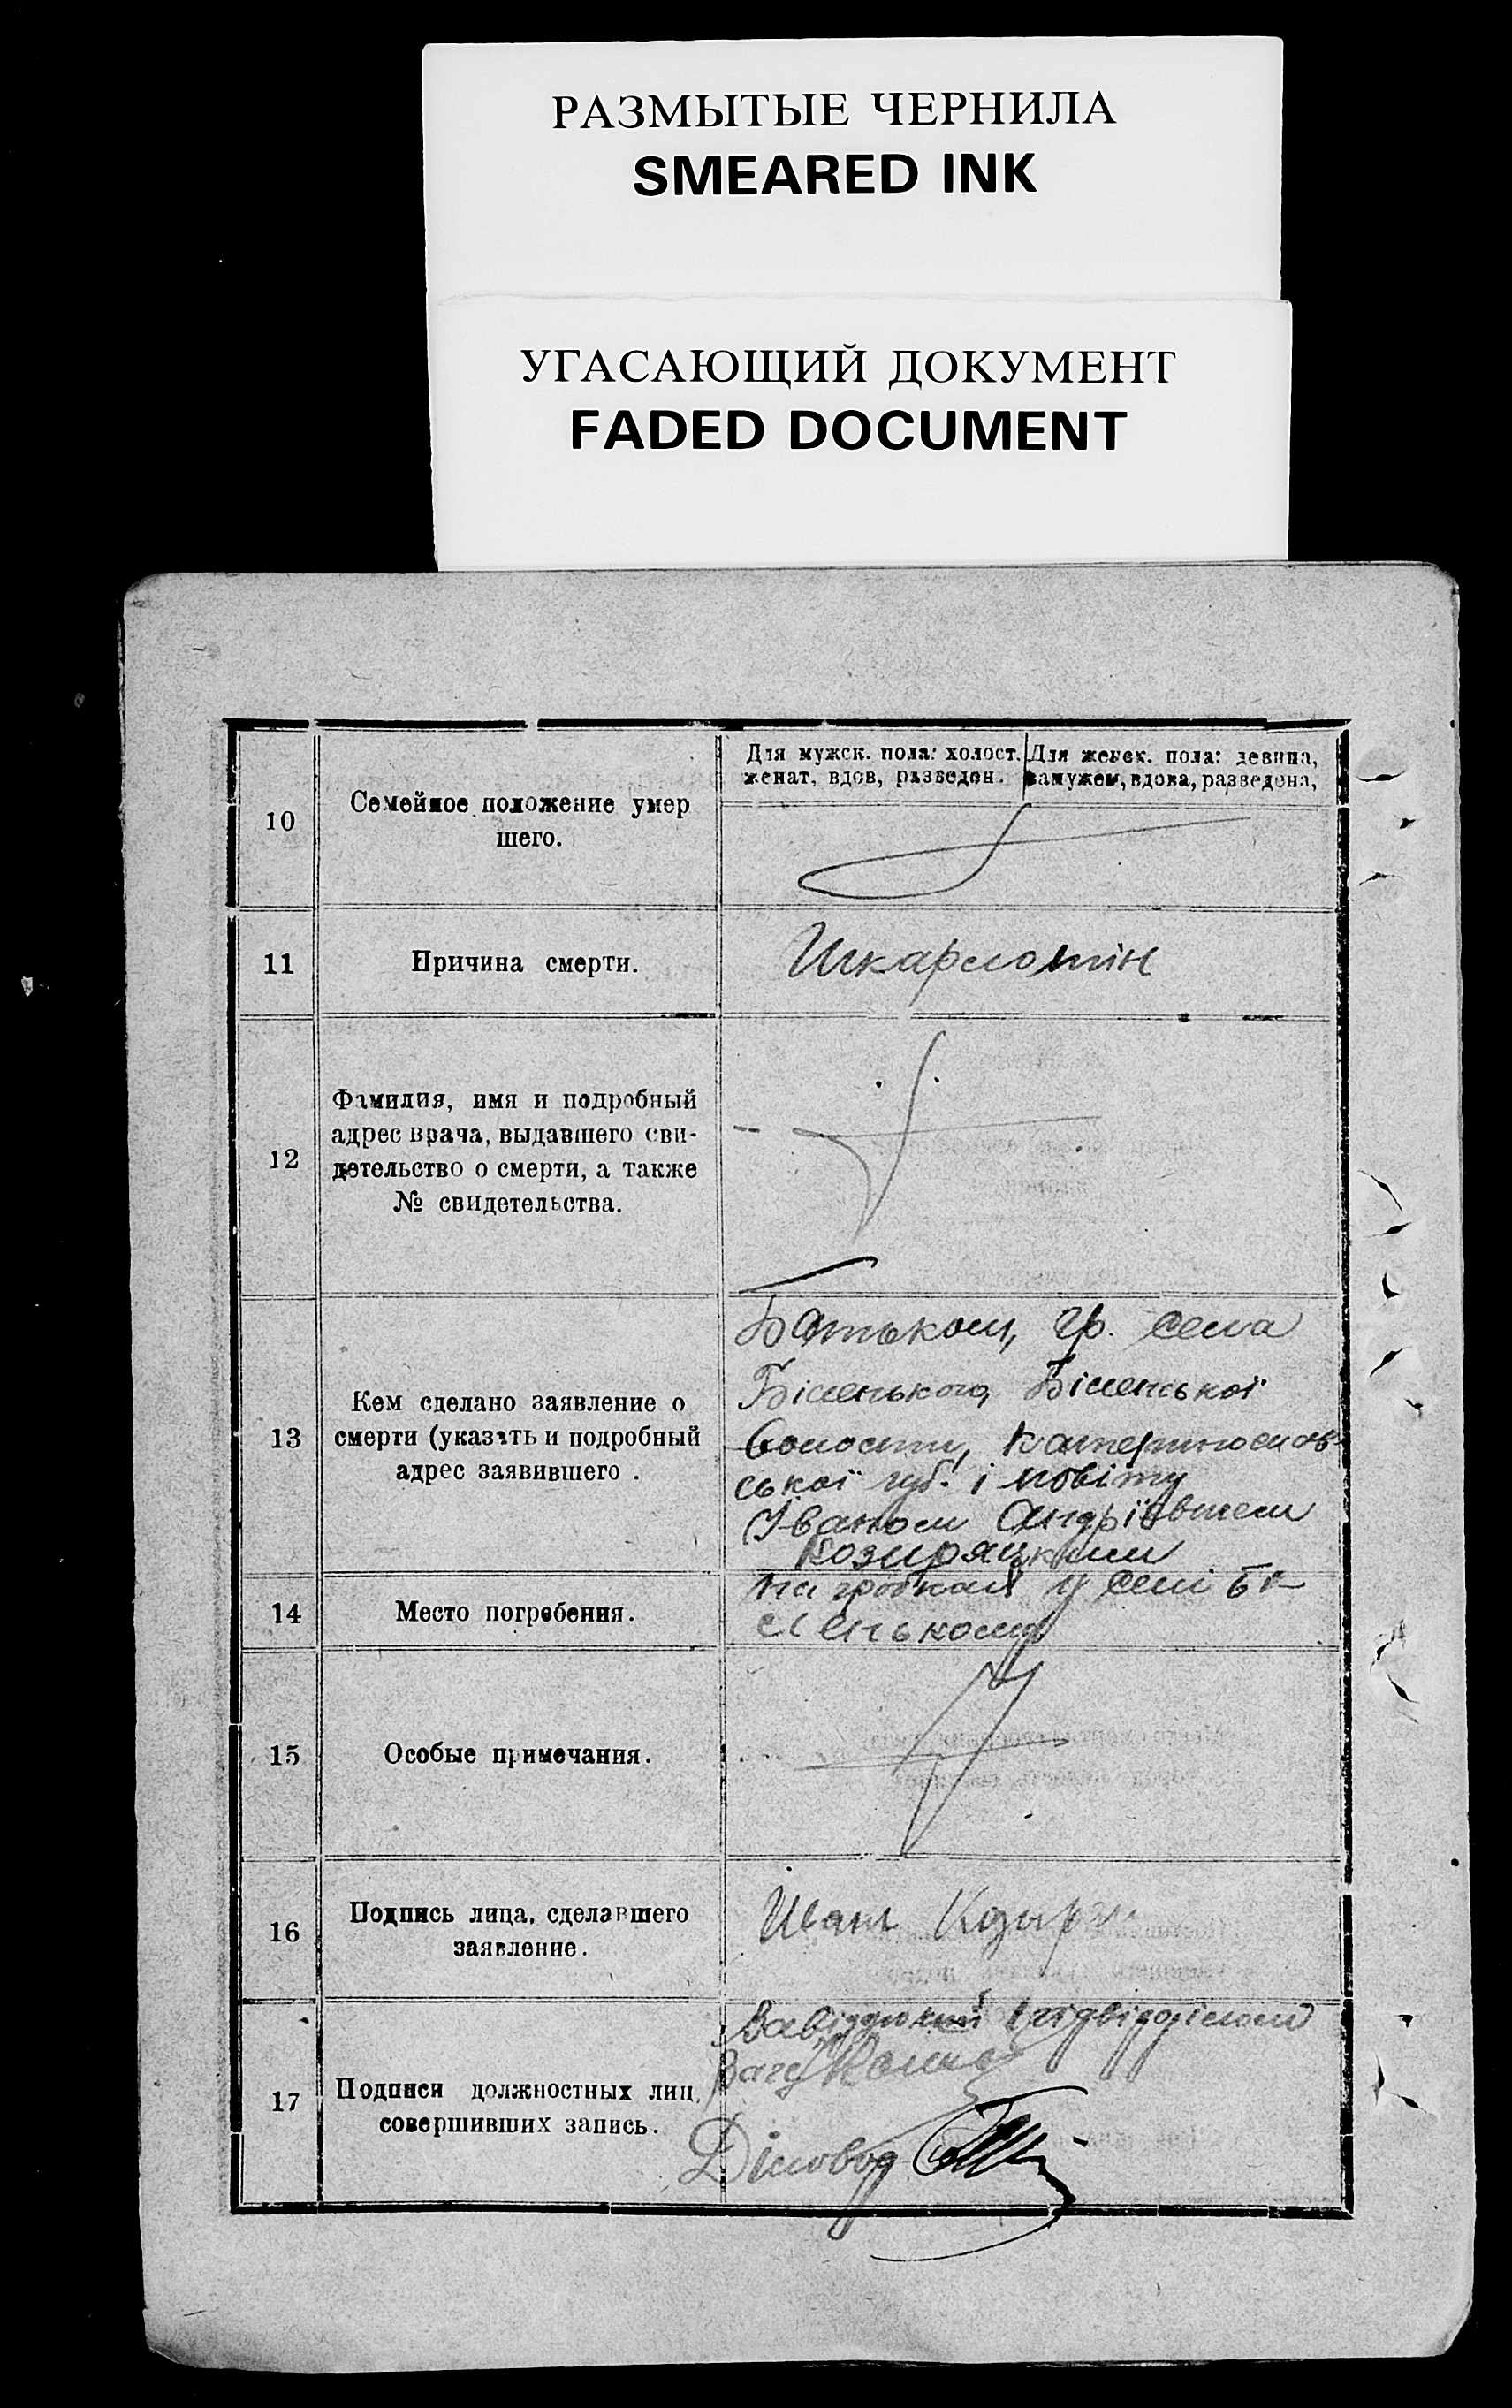 РАЗМЫТЫЕ ЧЕРНИЛА
SMEARED INK
УГАСАЮЩИЙ ДОКУМЕНТ
FADED DOCUMENT
10
Семейное положение умер
шего.
Для мужск. пола: холост.
женат, вдов, разведен.
Для женск. пола: девица,
замужем, вдова, разведена,
11
Причина смерти.
Шкарлотін
12
Фамилия, имя и подробный
адрес врача, выдавшего сви-
детельство о смерти, а также
№ свидетельства.
13
Кем сделано заявление о
смерти (указать и подробный
адрес заявившего .
Батьком, гр. села
Біленького, Біленської
волости, Катеринослав-
ської губ. і повіту
Іваном Андрієвичем
14
Место погребения.
на гробках у селі Бі-
ленькому
15
Особые примечания.
16
Подпись лица, сделавшего
заявление.
Иван
17
Подписи должностных лиц,
совершивших запись.
Завідуючий підвідділом
Діловод